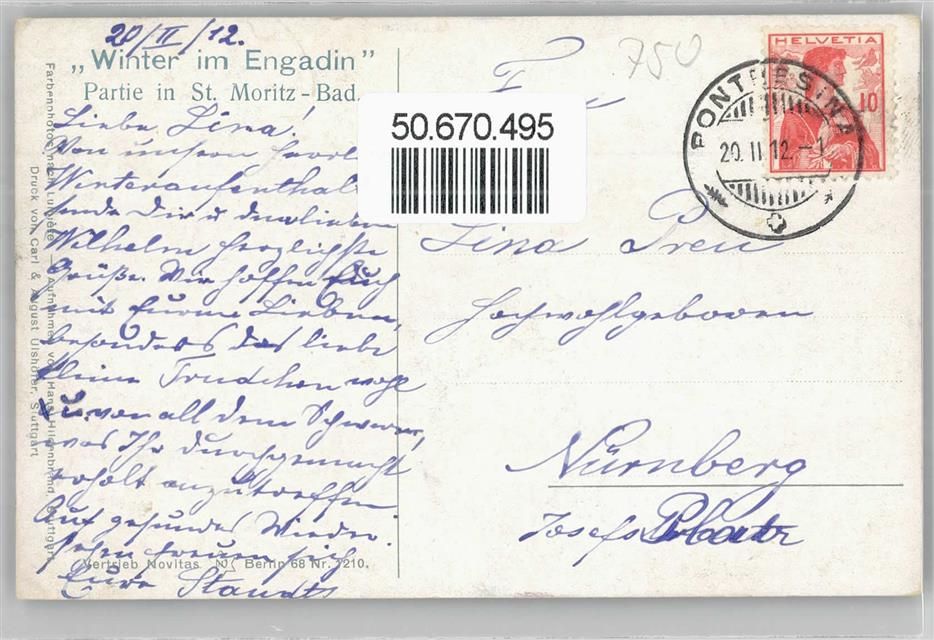 20/II/12.
„Winter im Engadin”
Partie in St. Moritz-Bad.
Liebe Lina.
Von unsern herrl
Winteraufenthalt
sende Dir u dem lieben
Wilhelm herzlichste
Grüße. Wir hoffen Euch
mit Euren Lieben,
besonders das liebe
kleine Trudchen wohl
u. von all dem Schweren,
was Ihr durchgemacht
erholt anzutreffen.
Auf gesundes Wieder-
sehen freuen sich
Eure Staudts
Vertrieb Novitas N Berlin 68 Nr. 7210.
Farbenphotos nach Lumière — Aufnahmen von Hans Hildenbrand, Stuttgart
Druck von Carl & August Ulshöfer, Stuttgart
50.670.495
750
HELVETIA
10
PONTRESINA
20.II.12.-1
Frau
Lina Preu
Hochwohlgeboren
Nürnberg
Josefs Platz